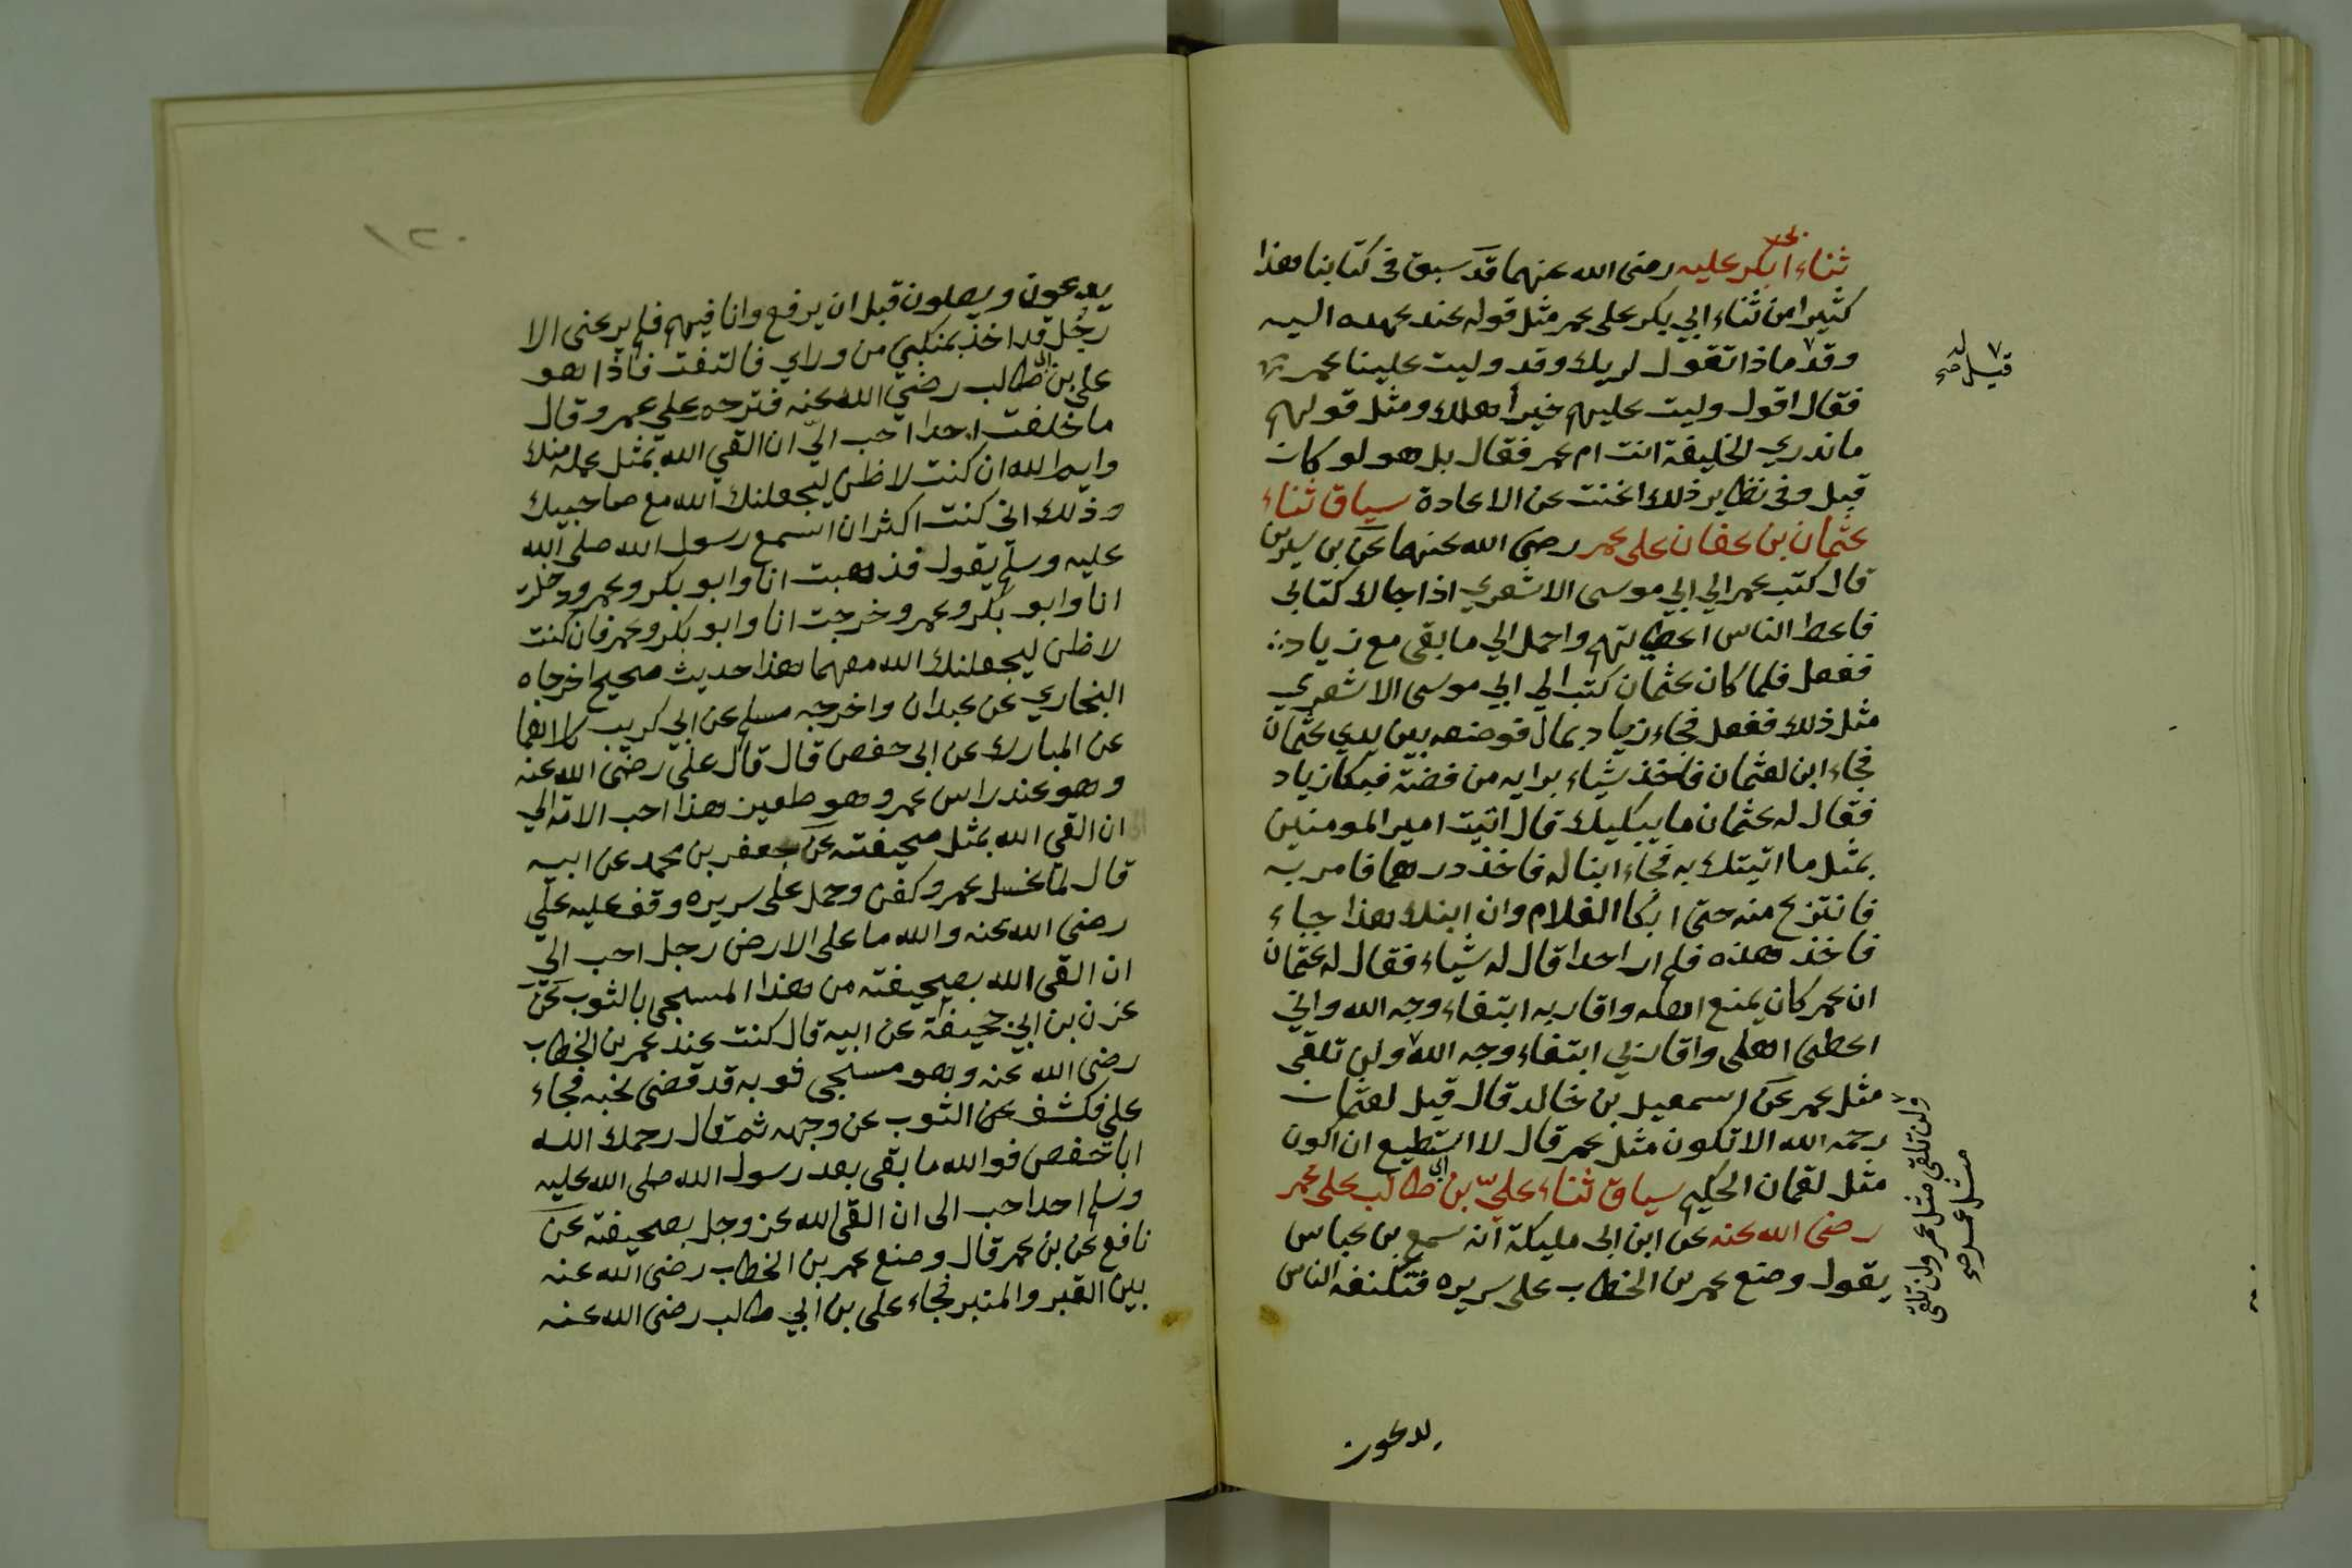 ثناء ابي بكر عليه رضى الله عنهما قد سبق فى كتابنا هذا
كثيرا من ثناء ابي بكر على عمر مثل قوله عند عهده اليه
وقد ماذا تقول لربك وقد وليت علينا عمر
قيل له صح
فقال اقول وليت عليهم خير اهلك ومثل قولهم
ماندري الخليفة انت ام عمر فقال بل هو لو كان
قبل وفى نظاير ذلك اغنت عن الاعادة سياق ثناء
عثمان بن عفان على عمر رضى الله عنهما عن بن سيرين
قال كتب عمر الي ابي موسى الاشعري اذا جاك كتابى
فاعط الناس اعطياتهم واحمل الي ما بقى مع زياد
ففعل فلما كان عثمان كتب الى ابي موسى الاشعري
مثل ذلك ففعل فجاء زياد بمال فوضعه بين يدي عثمان
فجاء ابن لعثمان فاخذ شياء بوايه من فضة فبكا زياد
فقال له عثمان ما يبكيك قال اتيت امير المومنين
بمثل ما اتيتك به فجاء ابنا له فاخذ درهما فامر به
فانتزع منه حتى ابكا الغلام وان ابنك هذا جاء
فاخذ هذه فلم ار احدا قال له شياء فقال له عثمان
ان عمر كان يمنع اهله واقاربه ابتغاء وجه الله واني
اعطى اهلى واقاربي ابتغاء وجه الله ولن تلقى
مثل عمر عن اسمعيل بن خالد قال قيل لعثمان
رحمه الله الا تكون مثل عمر قال لا استطيع ان اكون
مثل لقمان الحكيم سياق ثناء علي بن ابى طالب على عمر
رضى الله عنه عن ابن ابى مليكة انه سمع بن عباس
يقول وضع عمر بن الخطاب على سريره فتكنفه الناس
ولن تلقى مثل عمر ولن تلقى
مثل عمر صح
يدعون
١٢٠
يدعون ويصلون قبل ان يرفع وانا فيهم فلم يرعنى الا
رجل قد اخذ بمنكبي من وراي فالتفت فاذا هو
على بن ابى طالب رضي الله عنه فترحم على عمر وقال
ما خلفت احدا احب اليّ ان القي الله بمثل عمله منك
وايم الله ان كنت لاظن ليجعلنك الله مع صاحبيك
وذلك انى كنت اكثر ان اسمع رسول الله صلى الله
عليه وسلم يقول فذهبت انا وابو بكر وعمر ودخلت
انا وابو بكر وعمر وخرجت انا وابو بكر وعمر فان كنت
لاظن ليجعلنك الله معهما هذا حديث صحيح اخرجاه
البخاري عن عبدان واخرجه مسلم عن ابي كريب كلاهما
عن المبارك عن ابى حفص قال قال على رضى الله عنه
وهو عند راس عمر وهو طعين هذا احب الامة الي
ان القي الله بمثل صحيفته عن جعفر بن محمد عن ابيه
قال لما غسل عمر وكفن وحمل على سريره وقف عليه علي
رضى الله عنه والله ما على الارض رجل احب الي
ان القى الله بصحيفته من هذا المسجى بالثوب عن
عون بن ابي جحيفة عن ابيه قال كنت عند عمر بن الخطاب
رضى الله عنه وهو مسجى ثوبه قد قضى نحبه فجاء
على فكشف عن الثوب عن وجهه ثم قال رحمك الله
ابا حفص فوالله ما بقى بعد رسول الله صلى الله عليه
وسلم احد احب الى ان القى الله عز وجل بصحيفته عن
نافع عن بن عمر قال وضع عمر بن الخطاب رضى الله عنه
بين القبر والمنبر فجاء على بن ابي طالب رضى الله عنه